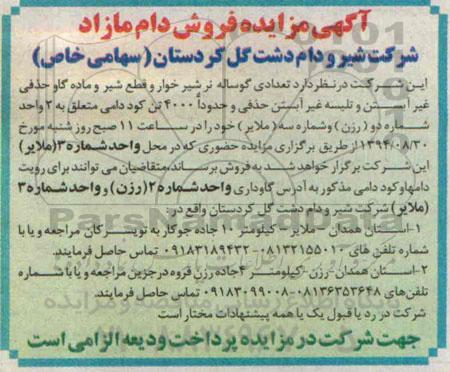 آگهی مزایده فروش دام مازاد
شرکت شیر و دام دشت گل کردستان (سهامی خاص)
این شرکت در نظر دارد تعدادی گوساله نر شیر خوار و قطع شیر و ماده گاو حذفی
غیر آبستن و تلیسه غیر آبستن حذفی و حدوداً ۴۰۰۰ تن کود دامی متعلق به ۲ واحد
شماره دو (رزن) وشماره سه (ملایر) خود را در ساعت ۱۱ صبح روز شنبه مورخ
۱۳۹۴/۰۸/۳۰ از طریق برگزاری مزایده حضوری که در محل واحد شماره ۳ (ملایر)
این شرکت برگزار خواهد شد به فروش برساند، متقاضیان می توانند برای رویت
دامها و کود دامی مذکور به آدرس گاوداری واحد شماره ۲ (رزن) و واحد شماره ۳
(ملایر) شرکت شیر و دام دشت گل کردستان واقع در:
۱-استان همدان -ملایر- کیلومتر ۱۰ جاده جوکار به تویسرکان مراجعه و یا با
شماره تلفن های ۰۸۱۳۲۱۵۵۰۱۰-۰۹۱۸۳۱۸۹۴۳۲ تماس حاصل فرمایند.
۲-استان همدان-رزن-کیلومتر ۴ جاده رزن قروه در جزین مراجعه و یا با شماره
تلفن های ۰۸۱۳۶۳۵۳۶۴۸-۰۹۱۸۳۰۹۹۰۰۸ تماس حاصل فرمایند.
شرکت در رد یا قبول یک یا همه پیشنهادات مختار است
جهت شرکت در مزایده پرداخت ودیعه الزامی است